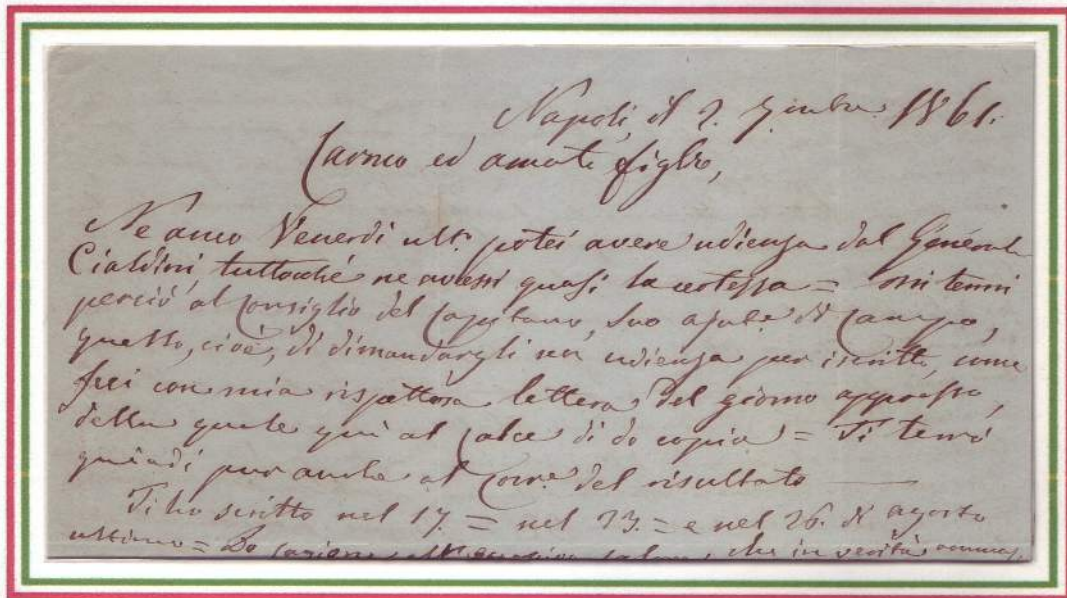 Napoli, il 2. 7mbre 1861.
Carmo ed amato figlio,
Ne anco Venerdi ult.º potei avere udienza dal Generale
Cialdini, tuttocché ne avessi quasi la certezza = mi tenni
perciò al Consiglio del Capitano, suo ajut.e di Campo,
questo, cioè, di dimandargli un' udienza per iscritto, come
feci con mia rispettosa lettera del giorno appresso,
della quale quì al calce ti do copia = Ti terrò
quindi pur anche al Corr.e del risultato —
Ti ho scritto nel 17. = nel 23. = e nel 26. di agosto
ultimo = che in verità